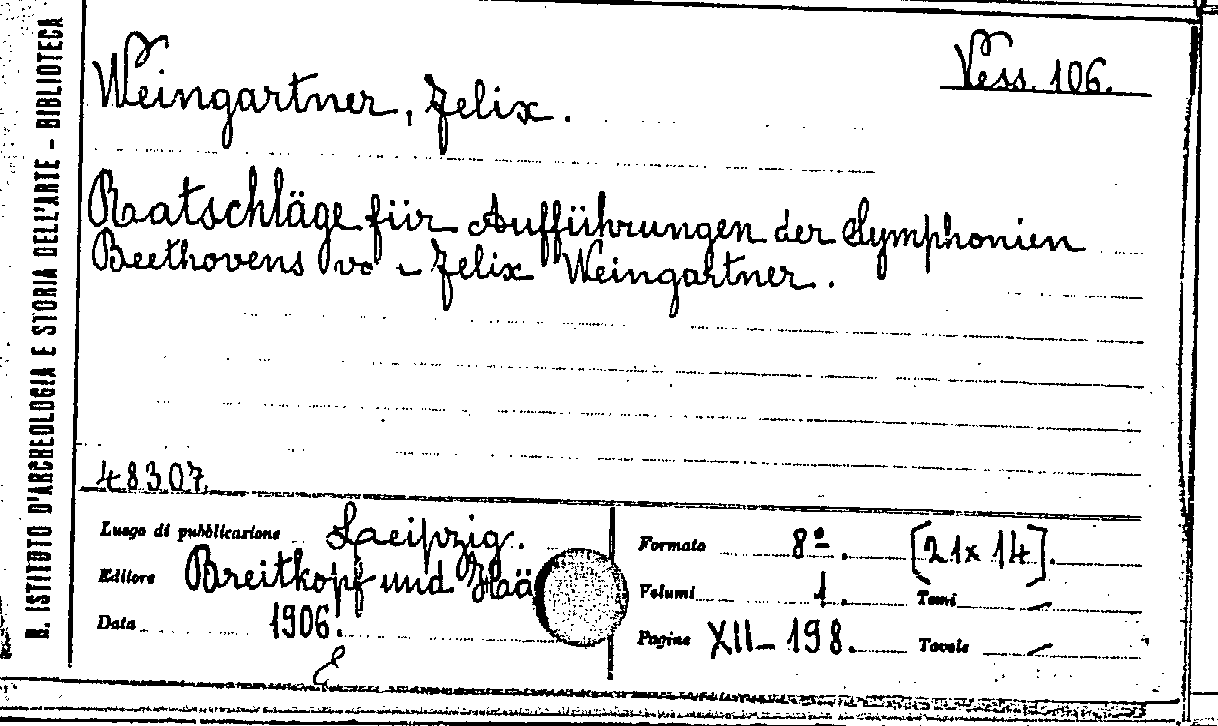 R. ISTITUTO D'ARCHEOLOGIA E STORIA DELL'ARTE - BIBLIOTECA
Vess. 106.
Weingartner, Felix.
Ratschläge für Aufführungen der Symphonien
Beethovens vo - Felix Weingartner.
48307
Luogo di pubblicazione Laeipzig.
Editore Breitkopf und Hä
Data 1906.
Formato 8º. [21x14].
Volumi 1. Tomi —
Pagine XII-198. Tavole —